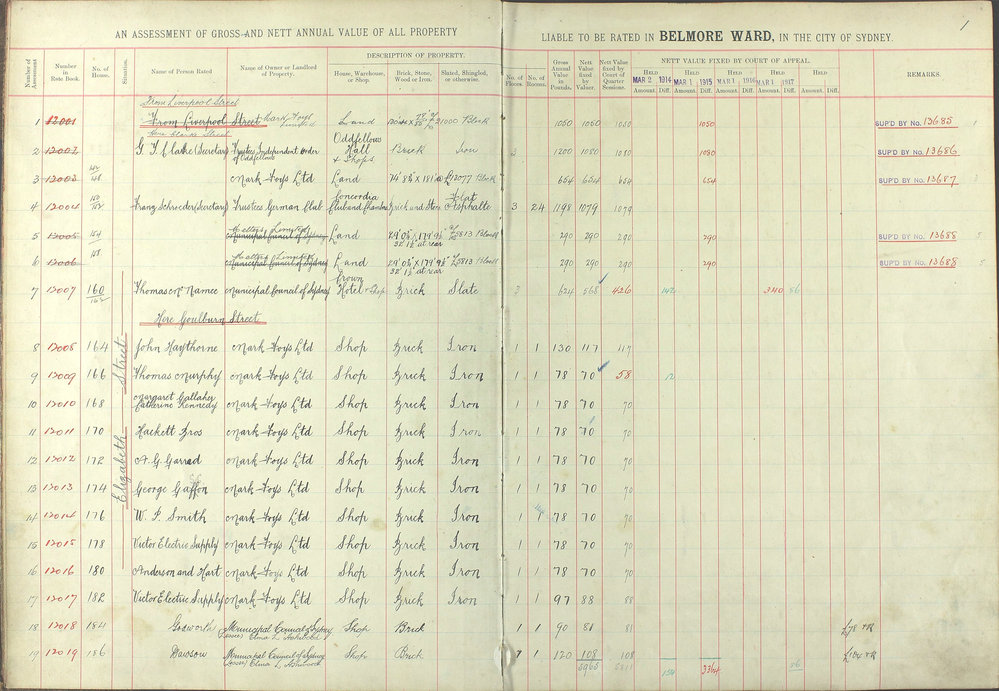 AN ASSESSMENT OF GROSS AND NETT ANNUAL VALUE OF ALL PROPERTY LIABLE TO BE RATED IN BELMORE WARD, IN THE CITY OF SYDNEY. 1
Number of Assessment Number in Rate Book. No. of House. Situation. Name of Person Rated Name of Owner or Landlord of Property. DESCRIPTION OF PROPERTY. House, Warehouse, or Shop. Brick, Stone, Wood or Iron. Slated, Shingled, or otherwise. No. of Floors. No. of Rooms. Gross Annual Value in Pounds. Nett Value fixed by Valuer. Nett Value fixed by Court of Quarter Sessions. NETT VALUE FIXED BY COURT OF APPEAL. REMARKS.
HELD MAR 2 1914 HELD MAR 1 1915 HELD MAR 1 1916 HELD MAR 1 1917 HELD
Amount. Diff. Amount. Diff. Amount. Diff. Amount. Diff. Amount. Diff.
From Liverpool Street
1 12001 From Liverpool Street Mark Foys Limited Land Block 1050 1050 1050 1050 SUP'D BY No. 13685
2 12002 G. T. Clarke (Secretary) Trustees Independent Order of Oddfellows Oddfellows Hall & Shops Brick Iron 3 1200 1080 1080 1080 SUP'D BY No. 13686
3 12003 Mark Foys Ltd Land Block 654 654 654 654 SUP'D BY No. 13687
4 12004 Franz Schroeder (Secretary) Trustees German Club Concordia Club and Chambers Brick and Stone Flat Asphalte 3 24 1198 1079 1079
5 12005 154 Municipal Council of Sydney Land 290 290 290 290 SUP'D BY No. 13688
6 12006 158 Municipal Council of Sydney Land 290 290 290 290 SUP'D BY No. 13688
7 12007 160 162 Thomas McNamee Municipal Council of Sydney Crown Hotel & Shop Brick Slate 3 624 568 426 142 340 86
Here Goulburn Street
Elizabeth Street
8 12008 164 John Haythorne Mark Foys Ltd Shop Brick Iron 1 1 130 117 117
9 12009 166 Thomas Murphy Mark Foys Ltd Shop Brick Iron 1 1 78 70 58 12
10 12010 168 Margaret Gallaher Catherine Kennedy Mark Foys Ltd Shop Brick Iron 1 1 78 70 70
11 12011 170 Hackett Bros Mark Foys Ltd Shop Brick Iron 1 1 78 70 70
12 12012 172 A. G. Garrad Mark Foys Ltd Shop Brick Iron 1 1 78 70 70
13 12013 174 George Gaffon Mark Foys Ltd Shop Brick Iron 1 1 78 70 70
14 12014 176 W. P. Smith Mark Foys Ltd Shop Brick Iron 1 1 78 70 70
15 12015 178 Victor Electric Supply Mark Foys Ltd Shop Brick Iron 1 1 78 70 70
16 12016 180 Anderson and Hart Mark Foys Ltd Shop Brick Iron 1 1 78 70 70
17 12017 182 Victor Electric Supply Mark Foys Ltd Shop Brick Iron 1 1 97 88 88
18 12018 184 Gosworth Municipal Council of Sydney Shop Brick 1 1 90 81 81 £78 + R
19 12019 186 Dawson Municipal Council of Sydney Shop Brick 1 1 120 108 108 £104 + R
5965 5811 154 3364 86